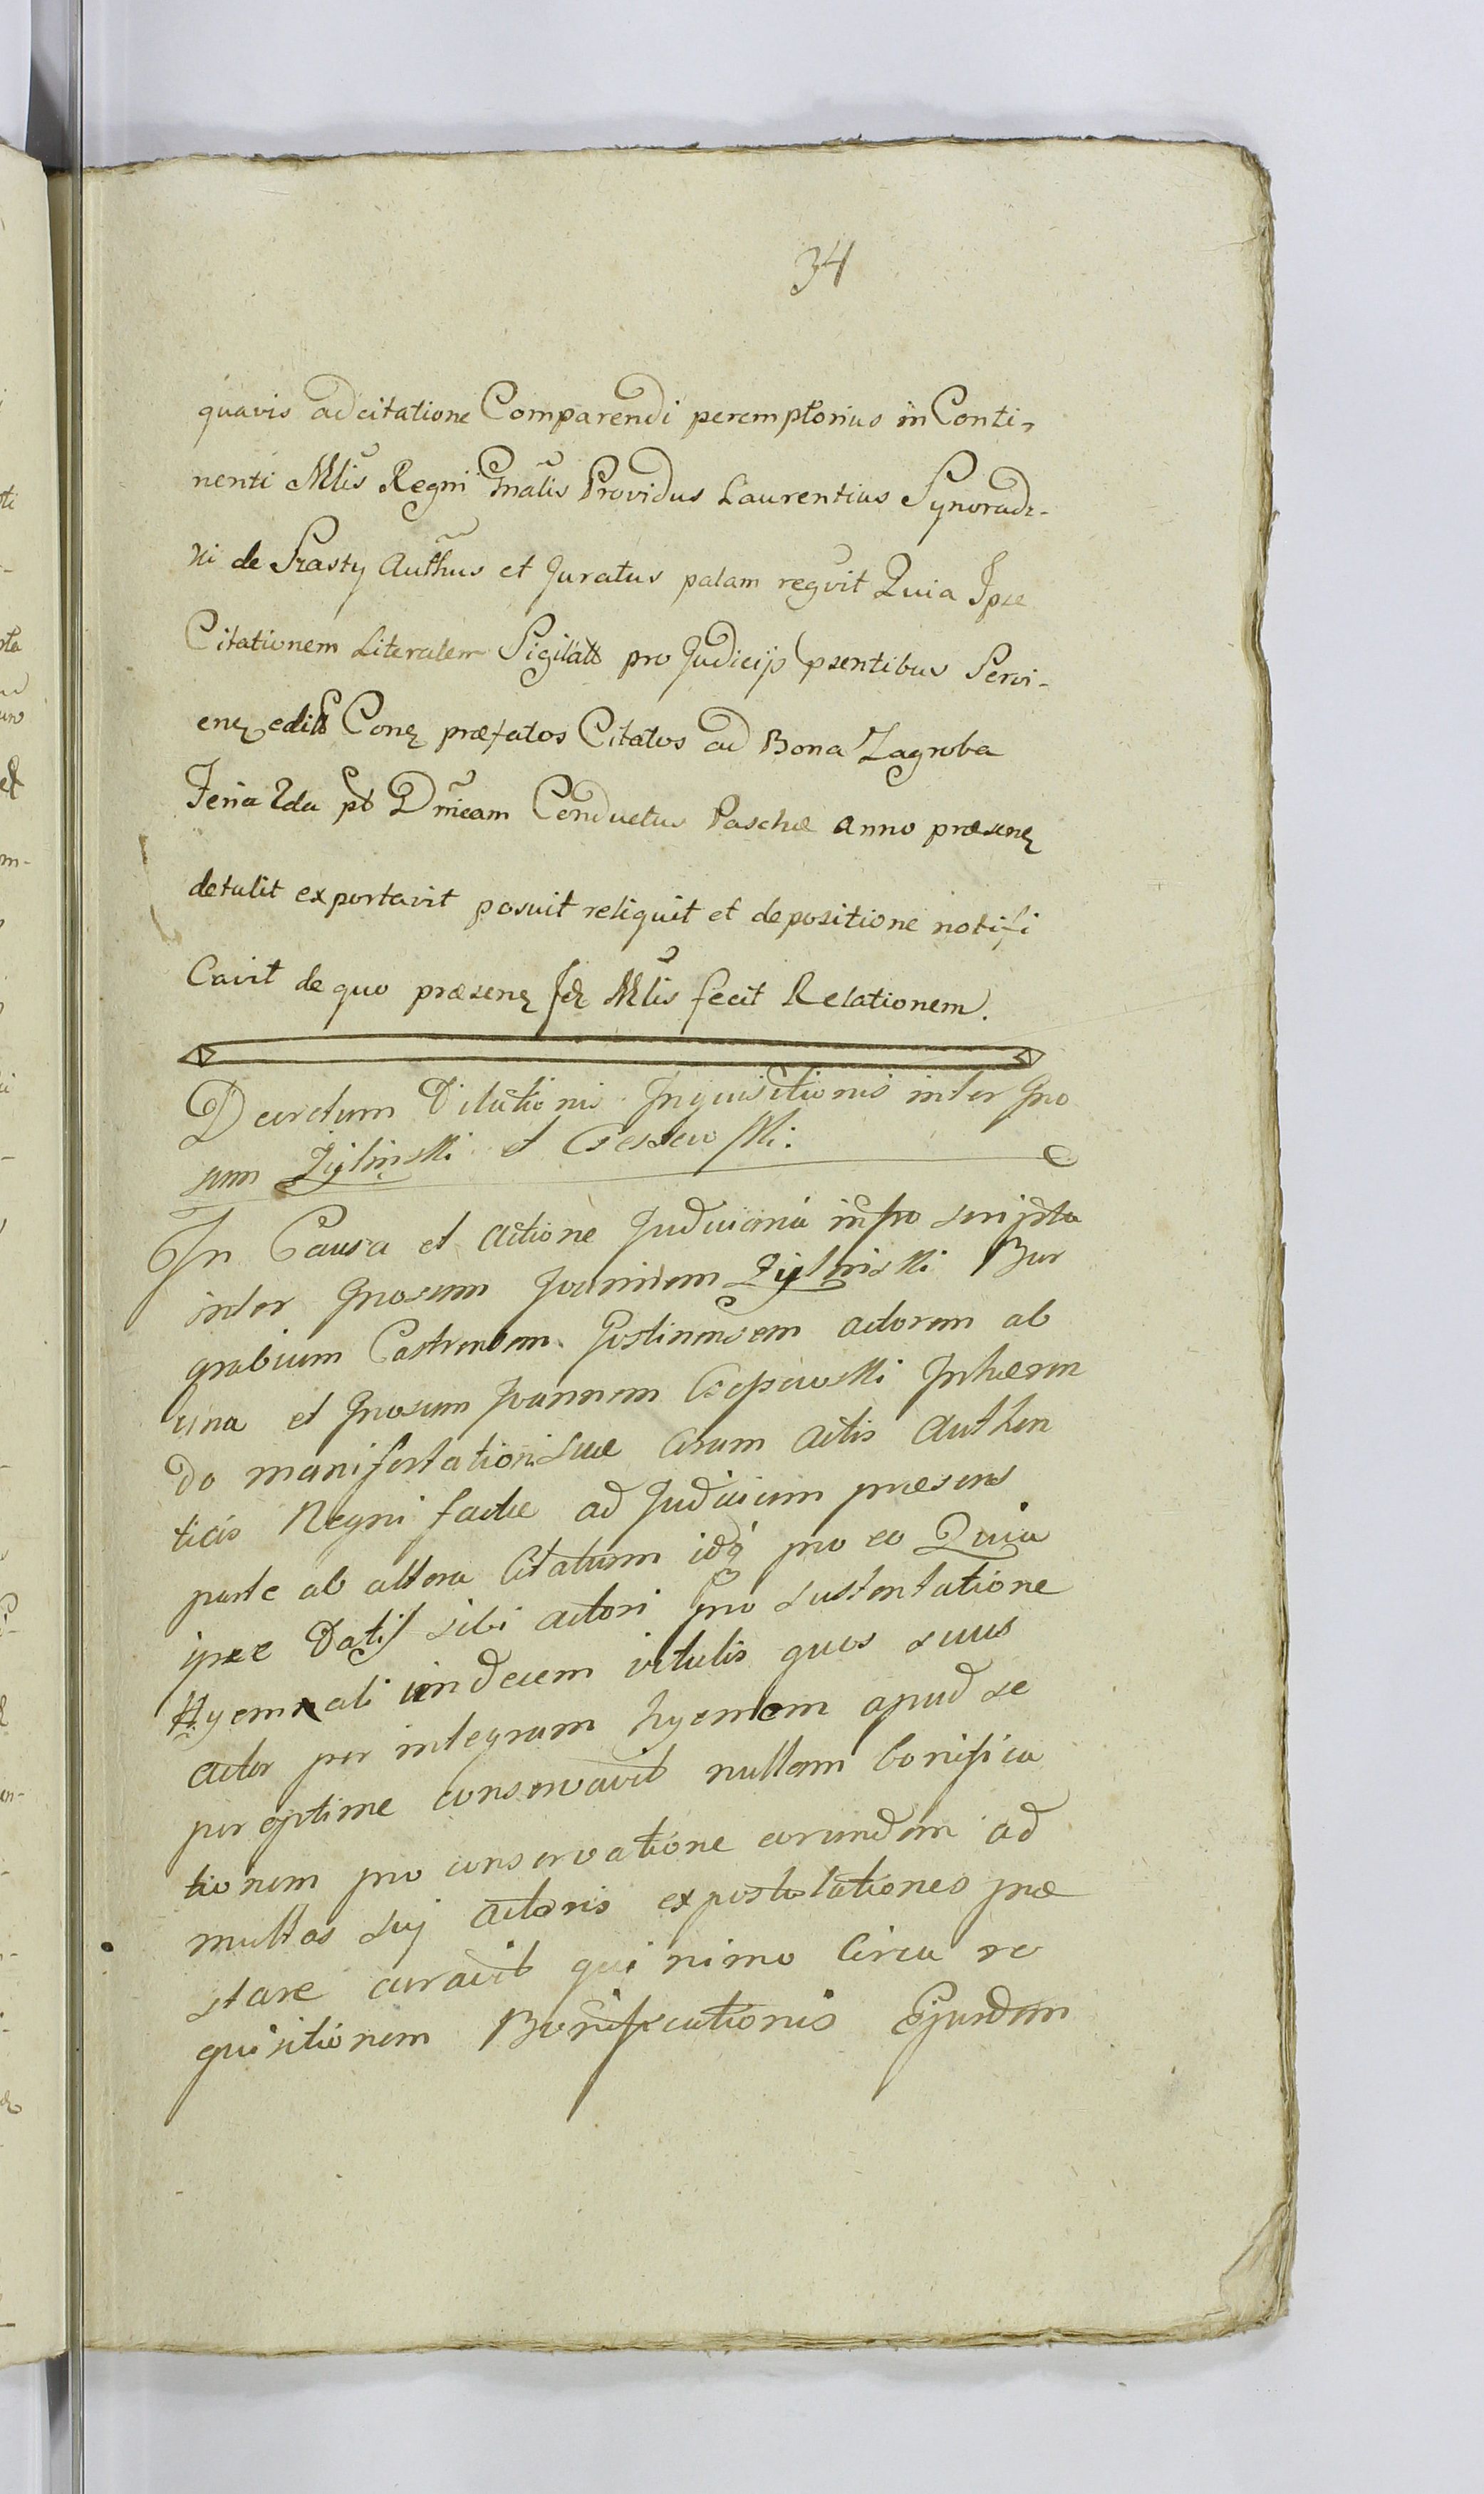 34
quavis adcitatione Comparendi peremptorius in Conti-
nenti Mlis Regni Gnalis Providus Laurentius Synoradz-
ki de Szasty Authus et Juratus palam regvit Quia Ipse
Citationem Literalem Sigilatt pro Judicijs psentibus Servi-
enz editt Conz præfatos Citatos ad Bona Zagroba
Feria 2da pt Dmicam Conductus Paschæ Anno præsenz
detulit exportavit posuit reliquit et depositione notifi
Cavit de quo præsenz Idz Mlis fecit Relationem.
Decretum Dilationis Inquisitionis inter Gno
sum Zylinski et Czesscwski.
In Causa et Actione Judiciaria infra scripta
inter Gnosum Joannem Zylinski Bur
grabium Castrensem Gostinensem Actorem ab
una et Gnosum Joannem Czepiewski Inhæren
do manifestationi suæ Coram Actis Authen
ticis Regni factæ ad Judicium præsens
parte ab altera Citatum idq pro eo Quia
ipse Datis sibi Actori pro sustentatione
Hyemali undecem vitulis quos suus
Actor per integram hyemem apud se
per optime conservavit nullam bonifica
tionem pro conservatione eorundem ad
multas sui Actoris expostulationes præ
stare curavit qui nimo Circa re
quisitionem Bonificationis Ejusdem